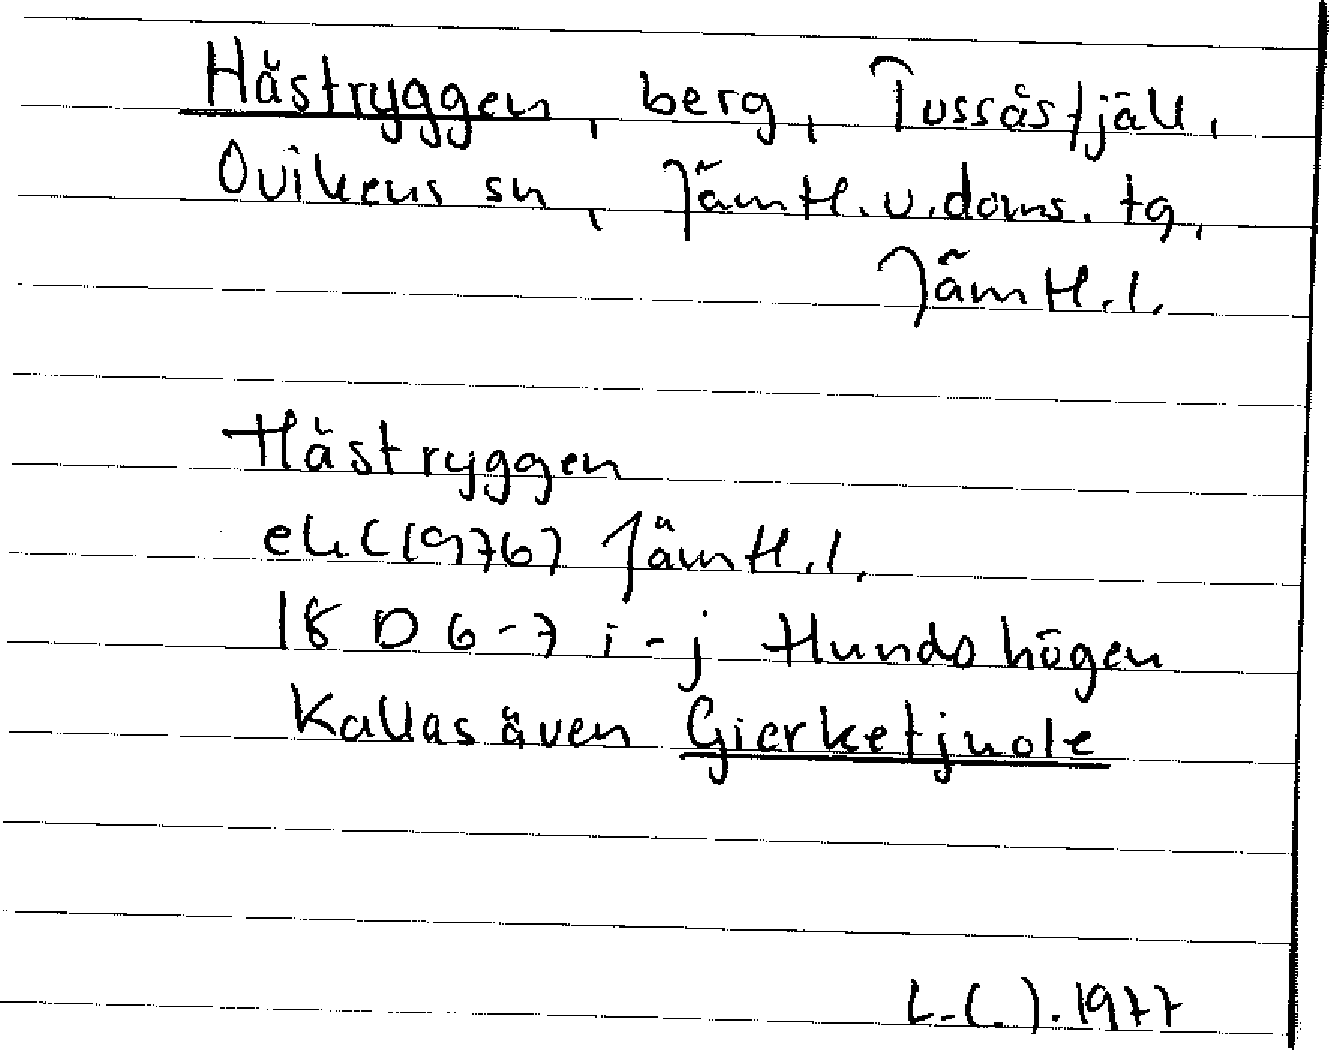 Hästryggen, berg, Tossåsfjäll,
Ovikens sn, Jämtl.v.doms.tg,
Jämtl.l.
Hästryggen
ek(1976) Jämtl.l.
18 D 6-7 i-j Hundshögen
Kallas även Gierketjuole
L.C.J.1977